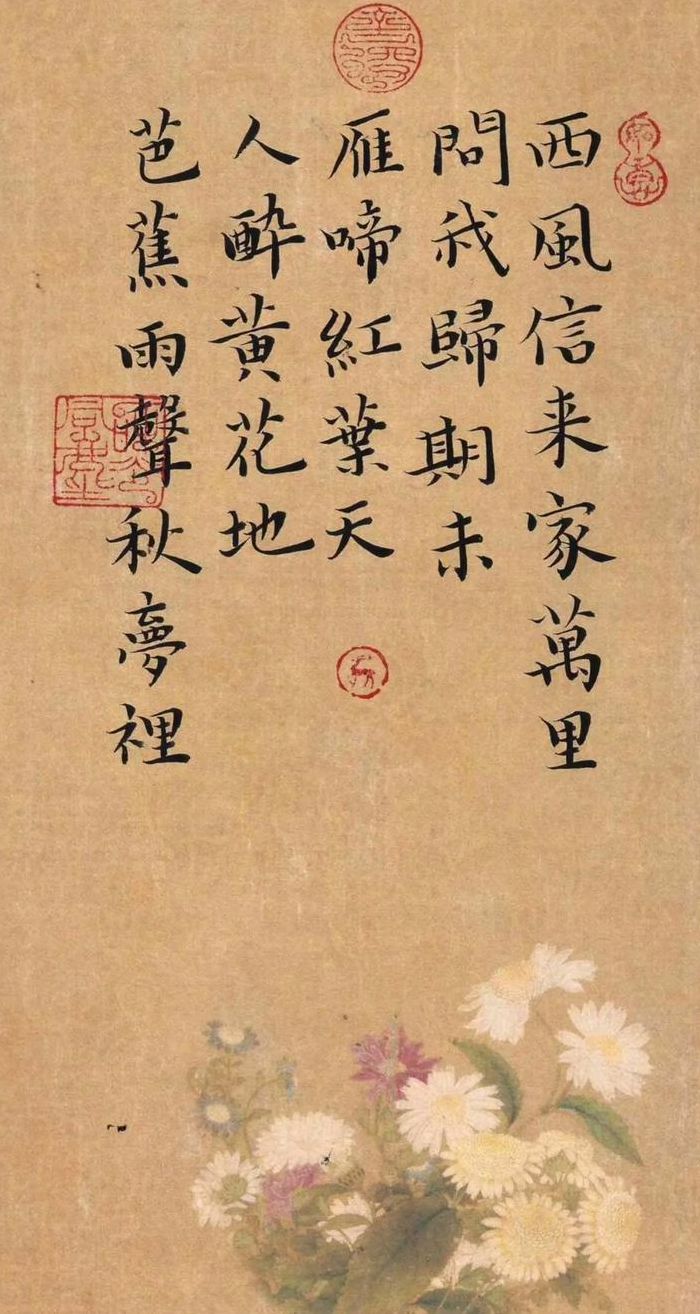 西風信来家萬里
問我歸期未
雁啼紅葉天
人醉黄花地
芭蕉雨聲秋夢裡